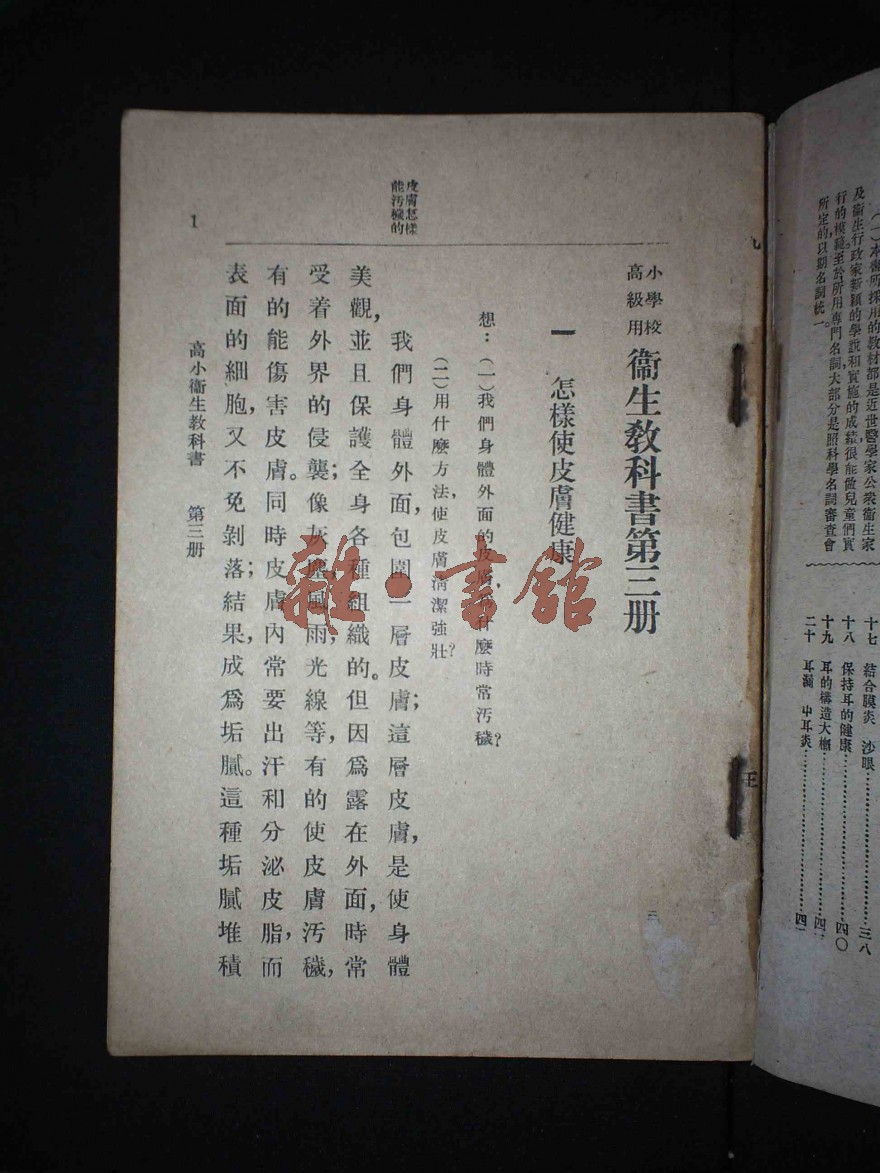 本書所採用的教材都是近世醫學家公衆衞生家
及衞生行政家新穎的學說和實施的成績很能做兒童們實
行的模範。至於所用專門名詞大部分是照科學名詞審查會
所定的,以期名詞統一。
十七　結合膜炎　沙眼……………三八
十八　保持耳的健康……………四〇
十九　耳的構造大概……………四
二十　耳漏　中耳炎……………四
小學校
高級用
衞生教科書第三册
一　怎樣使皮膚健康
想：(一)我們身體外面的皮膚，爲什麼時常汚穢？
(二)用什麼方法，使皮膚清潔強壯？
皮膚怎樣
能汚穢的
我們身體外面，包圍一層皮膚；這層皮膚，是使身體
美觀，並且保護全身各種組織的。但因爲露在外面，時常
受着外界的侵襲；像灰塵，風雨，光線等，有的使皮膚汚穢，
有的能傷害皮膚。同時皮膚內常要出汗和分泌皮脂，而
表面的細胞，又不免剝落；結果，成爲垢膩。這種垢膩堆積
1
高小衞生教科書　第三册
雜·書館